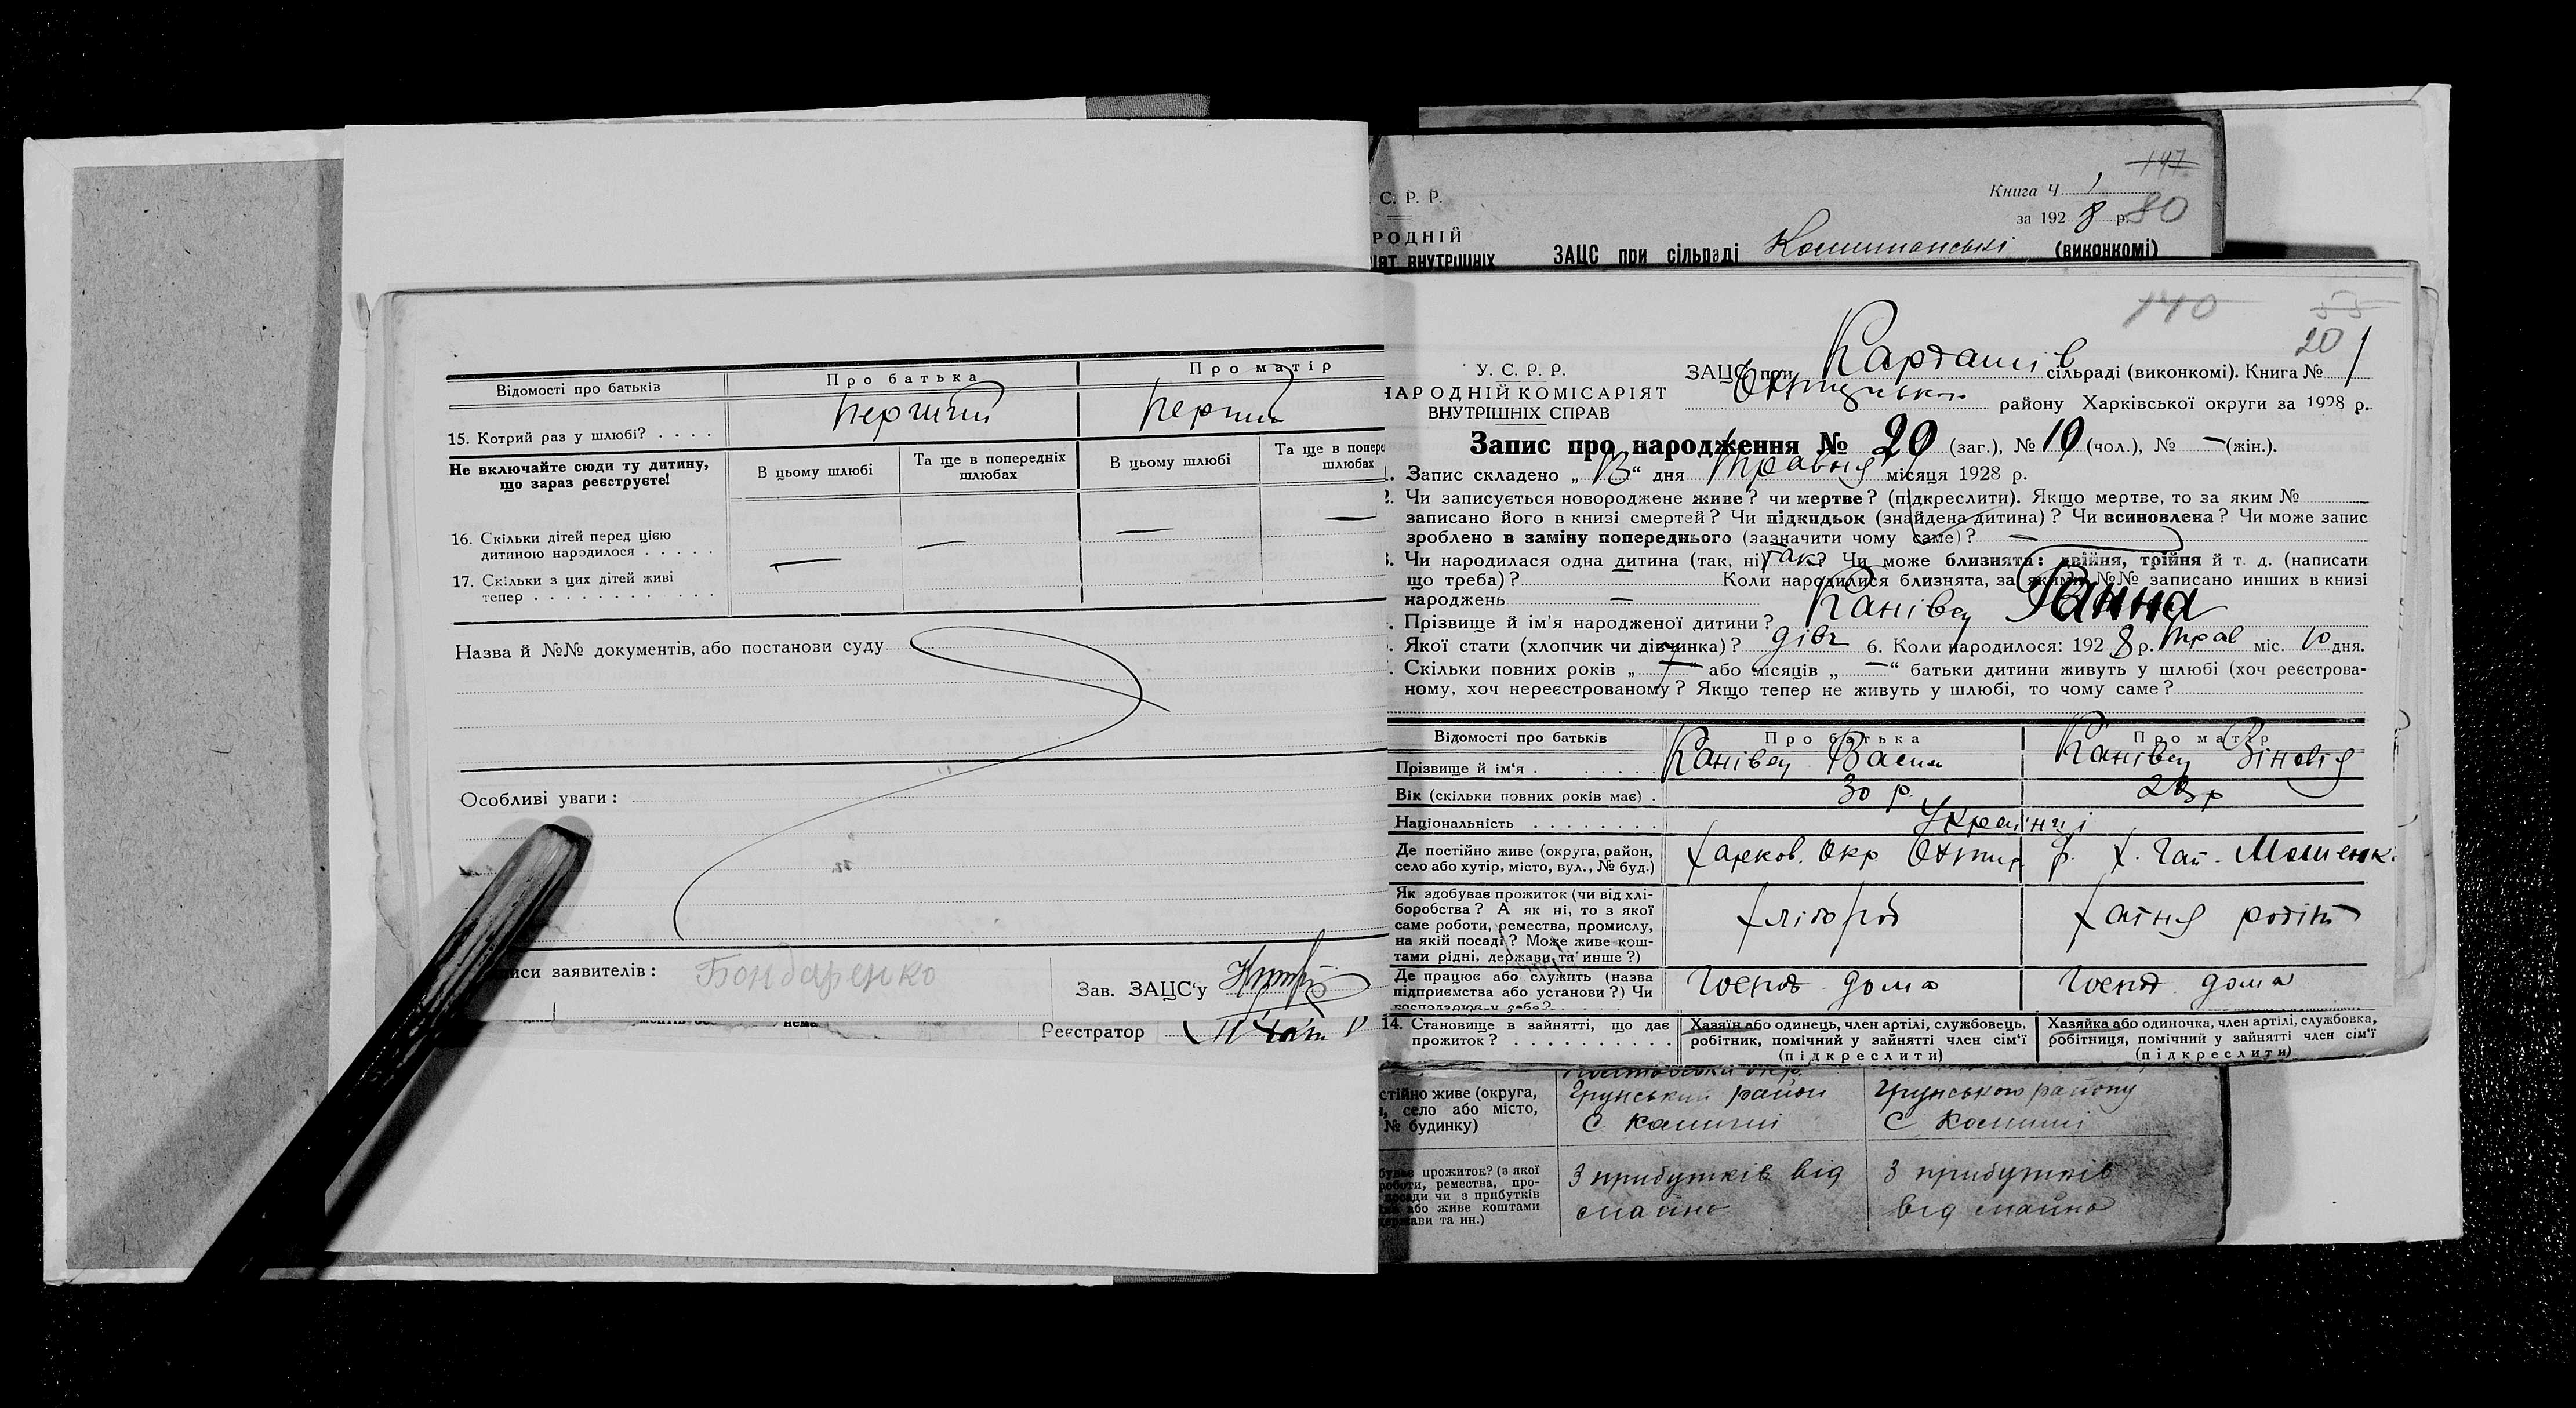 147
С. Р. Р.
Книга Ч. 1
за 1928 р. 80
РОДНІЙ
ІЯТ ВНУТРІШНІХ
ЗАЦС при сільраді (виконкомі)
Відомості про батьків
Про батька
Про матір
15. Котрий раз у шлюбі? . . . .
перший
перший
Не включайте сюди ту дитину,
що зараз реєструєте!
В цьому шлюбі
Та ще в попередніх
шлюбах
В цьому шлюбі
Та ще в попере
шлюбах
16. Скільки дітей перед цією
дитиною народилося . . . . .
— — — —
17. Скільки з цих дітей живі
тепер . . . . . . . . . . . .
Назва й №№ документів, або постанови суду
Особливі уваги:
иси заявителів: Бондаренко
Зав. ЗАЦС'у
Реєстратор
140
55
20
У. С. Р. Р.
НАРОДНІЙ КОМІСАРІЯТ
ВНУТРІШНІХ СПРАВ
ЗАЦС при Карташів сільраді (виконкомі). Книга № 1
району Харківської округи за 1928 р.
Запис про народження № 20 (заг.), № 10 (чол.), № — (жін.).
1. Запис складено „13“ дня травня місяця 1928 р.
2. Чи записується новороджене живе? чи мертве? (підкреслити). Якщо мертве, то за яким №
записано його в книзі смертей? Чи підкидьок (знайдена дитина)? Чи всиновлена? Чи може запис
зроблено в заміну попереднього (зазначити чому саме)? —
3. Чи народилася одна дитина (так, ні) так? Чи може близнята: двійня, трійня й т. д. (написати
що треба)? — Коли народилися близнята, за якими №№ записано инших в книзі
народжень —
. Прізвище й ім'я народженої дитини? Канівец Ганна
. Якої стати (хлопчик чи дівчинка)? дівч 6. Коли народилося: 1928 р. трав міс. 10 дня.
. Скільки повних років „ “ або місяців „—“ батьки дитини живуть у шлюбі (хоч реєстрова-
ному, хоч нереєстрованому? Якщо тепер не живуть у шлюбі, то чому саме?
Відомості про батьків
Про батька
Про матір
Прізвище й ім'я . . . . . . .
Канівец Васил
Канівец Зіновія
Вік (скільки повних років має) .
30 р.
Національність . . . . . . . .
Українці
Де постійно живе (округа, район,
село або хутір, місто, вул., № буд.)
Харков. Окр Охтир р. х. Гай-Мошенк.
Як здобуває прожиток (чи від хлі-
боробства? А як ні, то з якої
саме роботи, ремества, промислу,
на якій посаді? Може живе кош-
тами рідні, держави та инше?)
хлібороб
хатня робіт
Де працює або служить (назва
підприємства або установи?) Чи
господарює у себе?
Госпо дома
Госпо дома
14. Становище в зайнятті, що дає
прожиток? . . . . . . . . . .
Хазяїн або одинець, член артілі, службовець,
робітник, помічний у зайнятті член сім'ї
(підкреслити)
Хазяйка або одиночка, член артілі, службовка,
робітниця, помічний у зайнятті член сім'ї
(підкреслити)
стійно живе (округа,
, село або місто,
№ будинку)
Грунський район
Грунського району
прожиток? (з якої
роботи, ремества, про-
посади чи з прибутків
або живе коштами
держави та ин.)
З прибутків від
майна
З прибутків
від майна